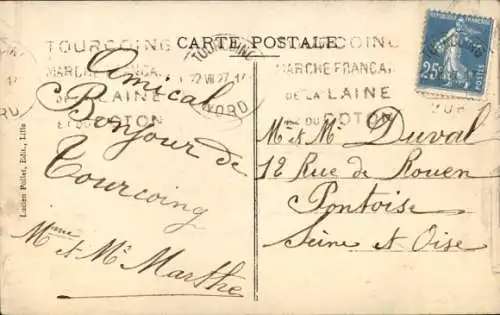 CARTE POSTALE
TOURCOING
MARCHE FRANCAI
DE LA LAINE
ET DU COTON
TOURCOING
22 VII 27
NORD
MARCHE FRANCAI
DE LA LAINE
COTON
25c
Amical
Bonjour de
Tourcoing
Mme et Mr Marthe
Mr et Me Duval
12 Rue de Rouen
Pontoise
Seine et Oise
Lucien Pollet, Edit., Lille